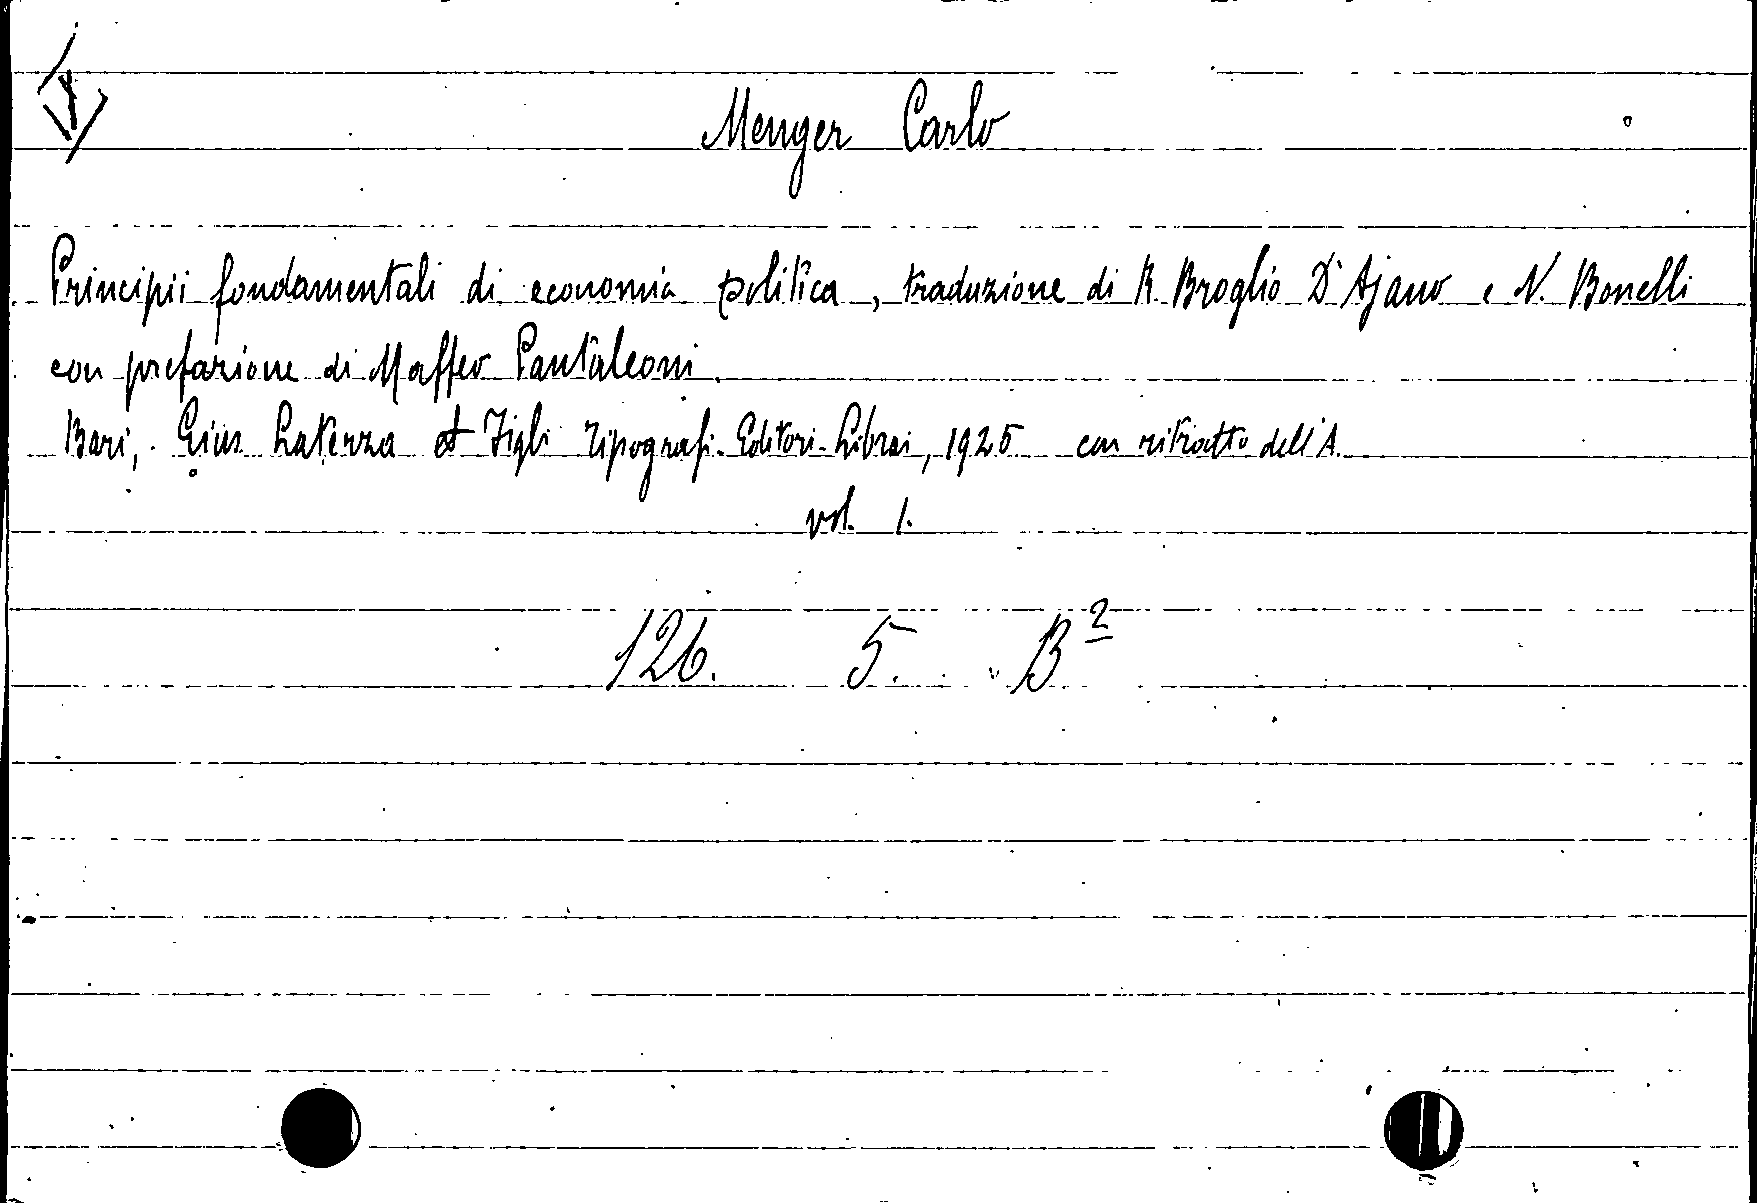 Menger Carlo
Principii fondamentali di economia politica, traduzione di R. Broglio D'Ajano e N. Bonelli
con prefazione di Maffeo Pantaleoni.
Bari, Gius. Laterza et Figli Tipografi-Editori-Librai, 1925 con ritratto dell'A.
vol. 1.
126. 5. B²